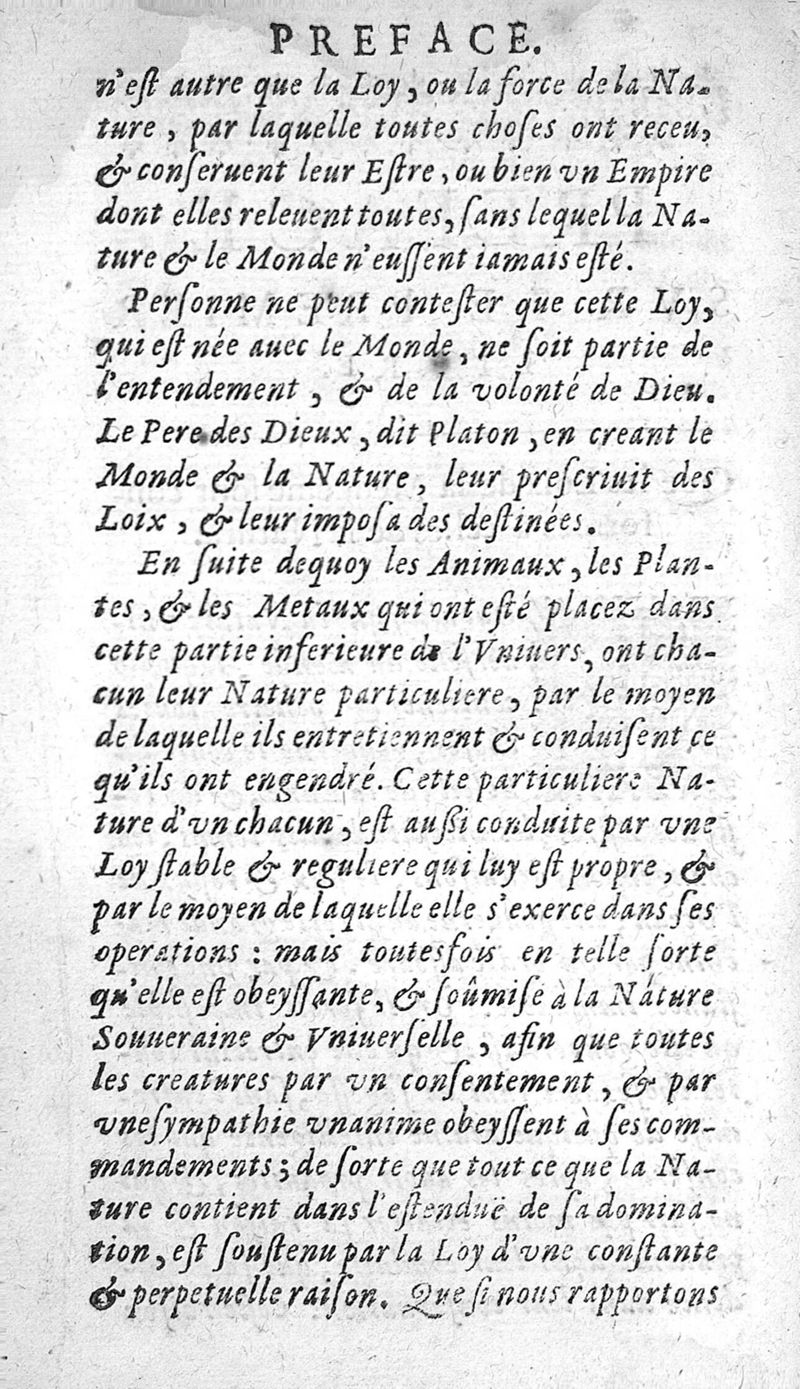 PREFACE.
n'eſt autre que la Loy, ou la force de la Na-
ture, par laquelle toutes choſes ont receu,
& conſeruent leur Eſtre, ou bien vn Empire
dont elles releuent toutes, ſans lequel la Na-
ture & le Monde n'euſſent iamais eſté.
Perſonne ne peut conteſter que cette Loy,
qui eſt née auec le Monde, ne ſoit partie de
l'entendement, & de la volonté de Dieu.
Le Pere des Dieux, dit Platon, en creant le
Monde & la Nature, leur preſcriuit des
Loix, & leur impoſa des deſtinées.
En ſuite dequoy les Animaux, les Plan-
tes, & les Metaux qui ont eſté placez dans
cette partie inferieure de l'Vniuers, ont cha-
cun leur Nature particuliere, par le moyen
de laquelle ils entretiennent & conduiſent ce
qu'ils ont engendré. Cette particuliere Na-
ture d'vn chacun, eſt außi conduite par vne
Loy ſtable & reguliere qui luy eſt propre, &
par le moyen de laquelle elle s'exerce dans ſes
operations : mais toutesfois en telle ſorte
qu'elle eſt obeyſſante, & ſoûmiſe à la Nature
Souueraine & Vniuerſelle, afin que toutes
les creatures par vn conſentement, & par
vne ſympathie vnanime obeyſſent à ſes com-
mandements ; de ſorte que tout ce que la Na-
ture contient dans l'eſtenduë de ſa domina-
tion, eſt ſouſtenu par la Loy d'vne conſtante
& perpetuelle raiſon. Que ſi nous rapportons